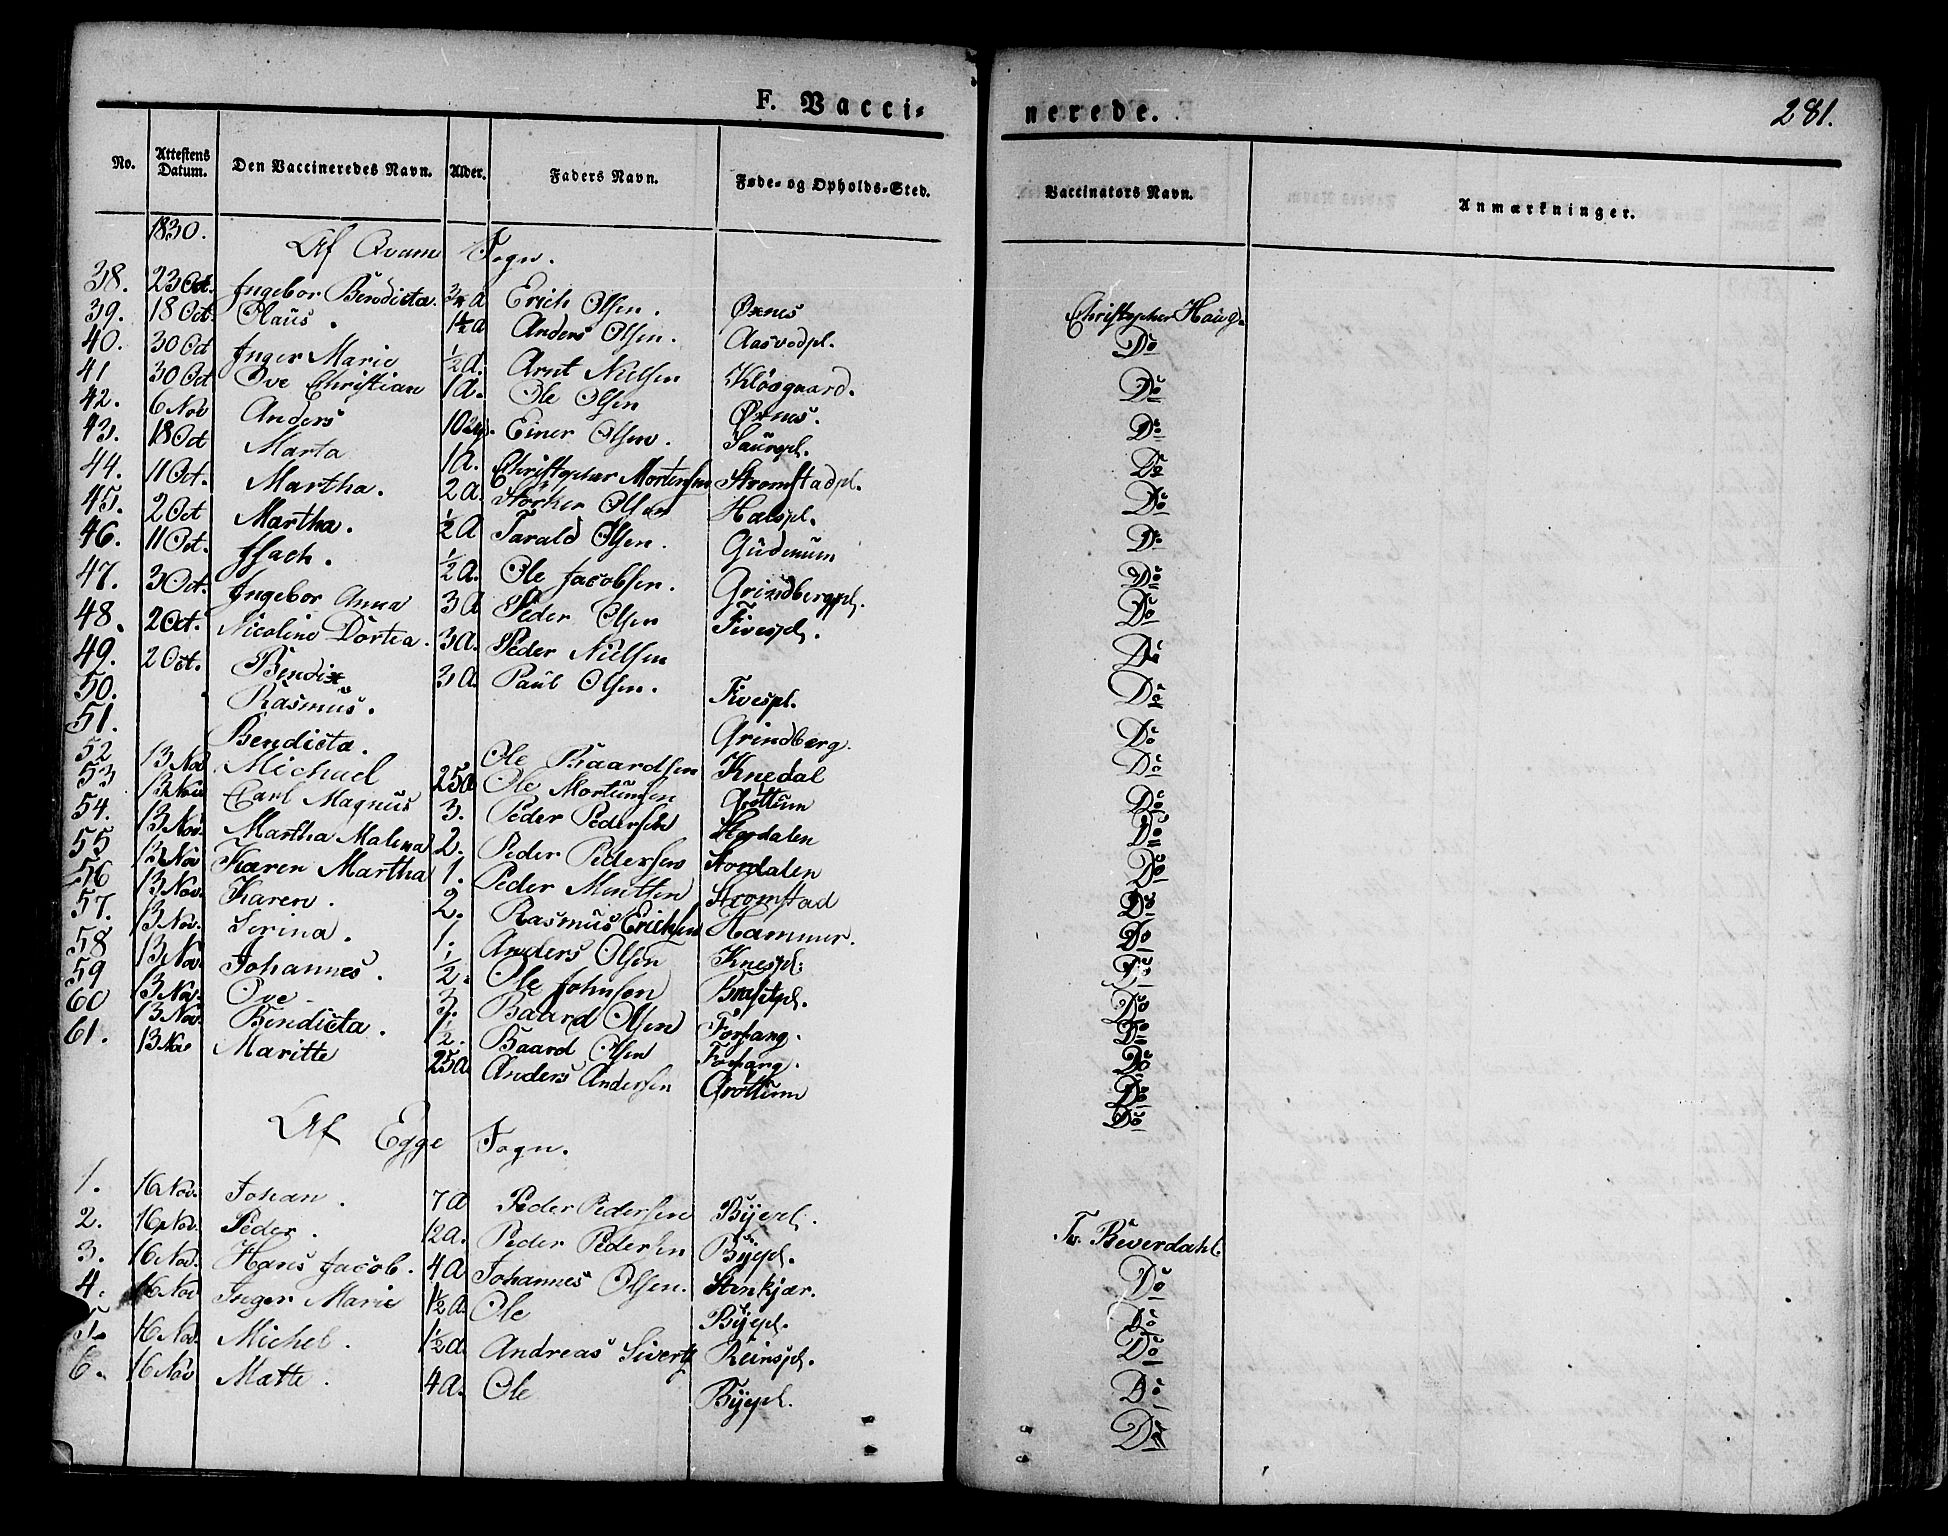 F. Vaccinerede.
281.
No. Attestens Datum. Den Vaccineredes Navn. Alder. Faders Navn. Føde- og Opholds-Sted. Vaccinators Navn. Anmærkninger.
1830. Af Qvam Sogn.
38. 23 Oct. Ingebor Bendicta. 3/4 a Erich Olsen. Øxnes Christopher Haug.
39. 18 Oct. Claus. 1 1/2 a Anders Olsen. Aasvedpl. Do
40. 30 Oct Inger Marie 1/2 a. Arnt Nielsen Kløsgaard. Do
41 30 Oct Ove Christian 1 a. Ole Olsen Øxnes. Do
42. 6 Nov Anders 10 Einer Olsen. Saurpl. Do
43. 18 Oct Marta 1 a. Christopher Mortensen Stromstadpl. Do
44. 11 Oct. Martha. 2 a. Storker Olsen Halspl. Do
45. 2 Oct Martha. 1/2 a Tarald Olsen. Gudmum Do
46. 11 Oct. Isach. 1/2 a. Ole Jacobsen. Grindbergpl. Do
47. 3 Oct. Ingebor Anna 3 a Peder Olsen Fivespl. Do
48. 2 Oct. Nicoline Dortea. 3 a. Peder Nielsen Do
49. 2 Oct. Bendix 3 a Paul Olsen. Fivespl. Do
50. Rasmus. Grindberg. Do
51. Bendicta. Ole Baardsen Knedal Do
52 13 Nov Michael 25 a Ole Mortensen Grøttum Do
53 13 Nov Carl Magnus 3. Peder Pedersen Stordalen Do
54. 13 Nov. Martha Malena 2. Peder Pedersen Stordalen Do
55 13 Nov Karen Martha 1. Peder Mentsen Stromstad Do
56 13 Nov. Karen. 2. Rasmus Erichsen Hammer. Do
57. 13 Nov. Sirina. 1. Anders Olsen Knespl. Do
58 13 Nov. Johannes. 1/2. Ole Johnsen Do
59 13 Nov. Ove 3. Baard Olsen Forfang. Do
60 13 Nov. Bendicta. 1/2. Baard Olsen Forfang. Do
61. 13 Nov Maritte 25 a Anders Andersen Grøttum Do
Af Egge Sogn.
1. 16 Nov. Johan. 7 a Peder Pedersen Byepl. Beverdahl.
2. 16 Nov. Peder. 12 a. Peder Pedersen Byepl. Do
3. 16 Nov. Hans Jacob. 4 a Johannes Olsen. Stenkjær. Do
4. 16 Nov Inger Marie 1 1/2 a. Ole Byepl. Do
5. 16 Nov. Michel. 1 1/2 a Andreas Sivertz Reinspl. Do
6. 16 Nov Matte. 4 a. Ole Byepl. Do